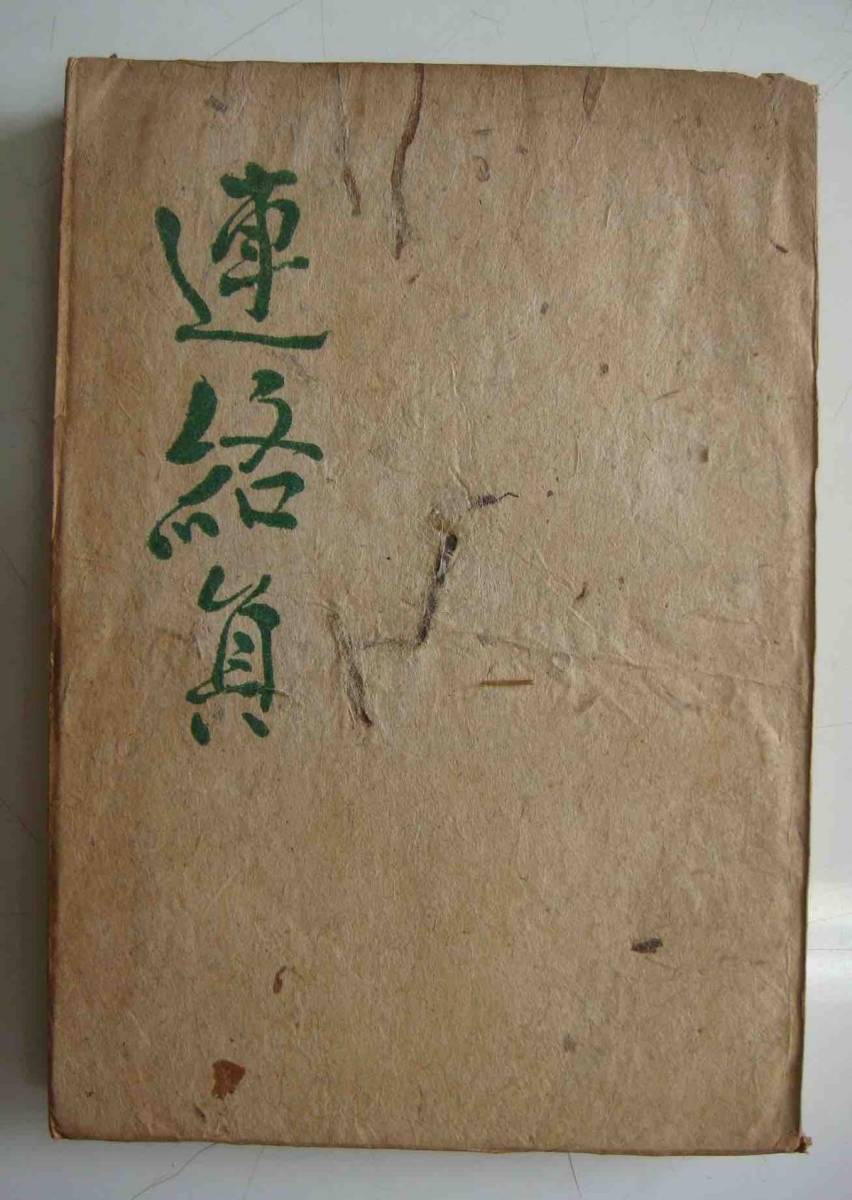 連絡員